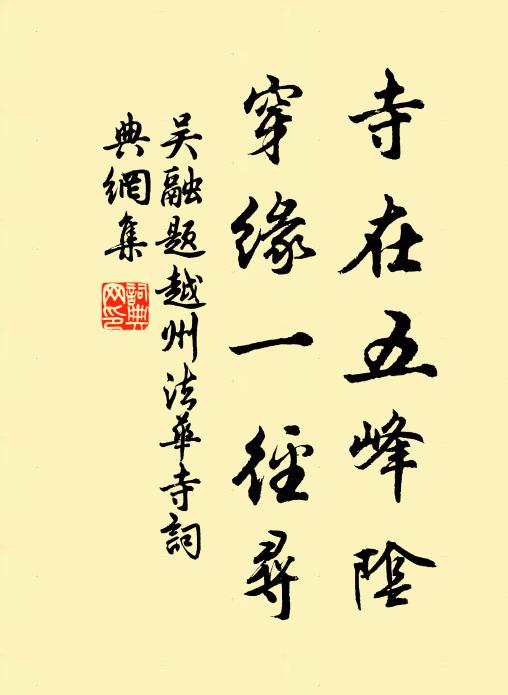 寺在五峰陰
穿緣一徑尋
吳融題越州法華寺詞
典網集
詞典網印